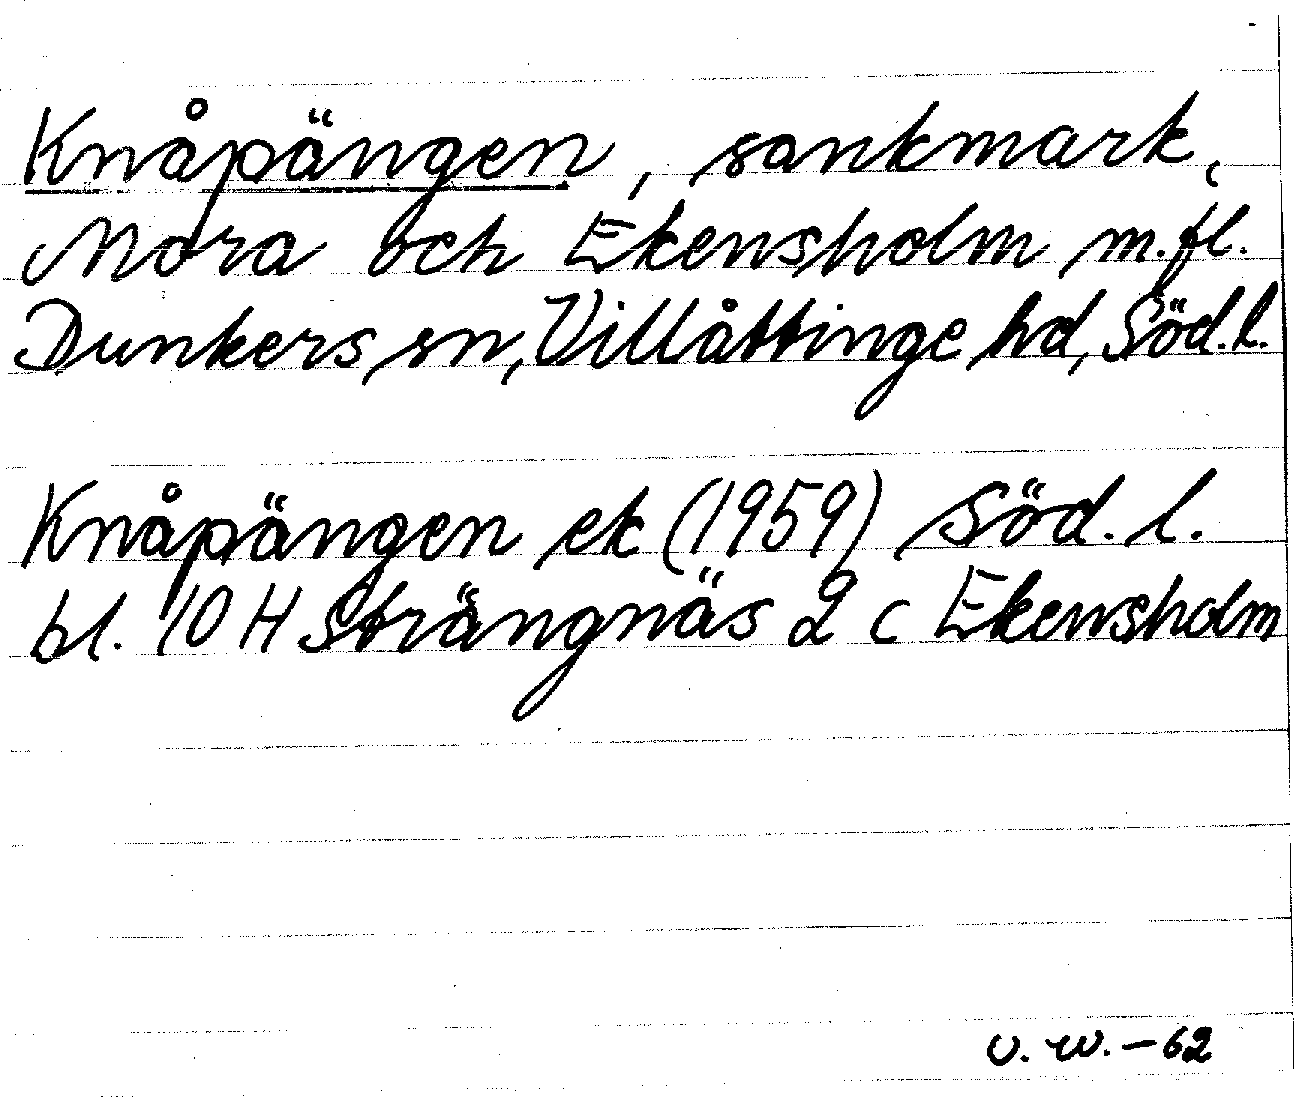 Knåpängen, sankmark,
Mora och Ekensholm m.fl.
Dunkers sn, Villåttinge hd, Söd.l.
Knåpängen ek (1959) Söd.l.
bl. 10 H Strängnäs 2 c Ekensholm
U.W.-62